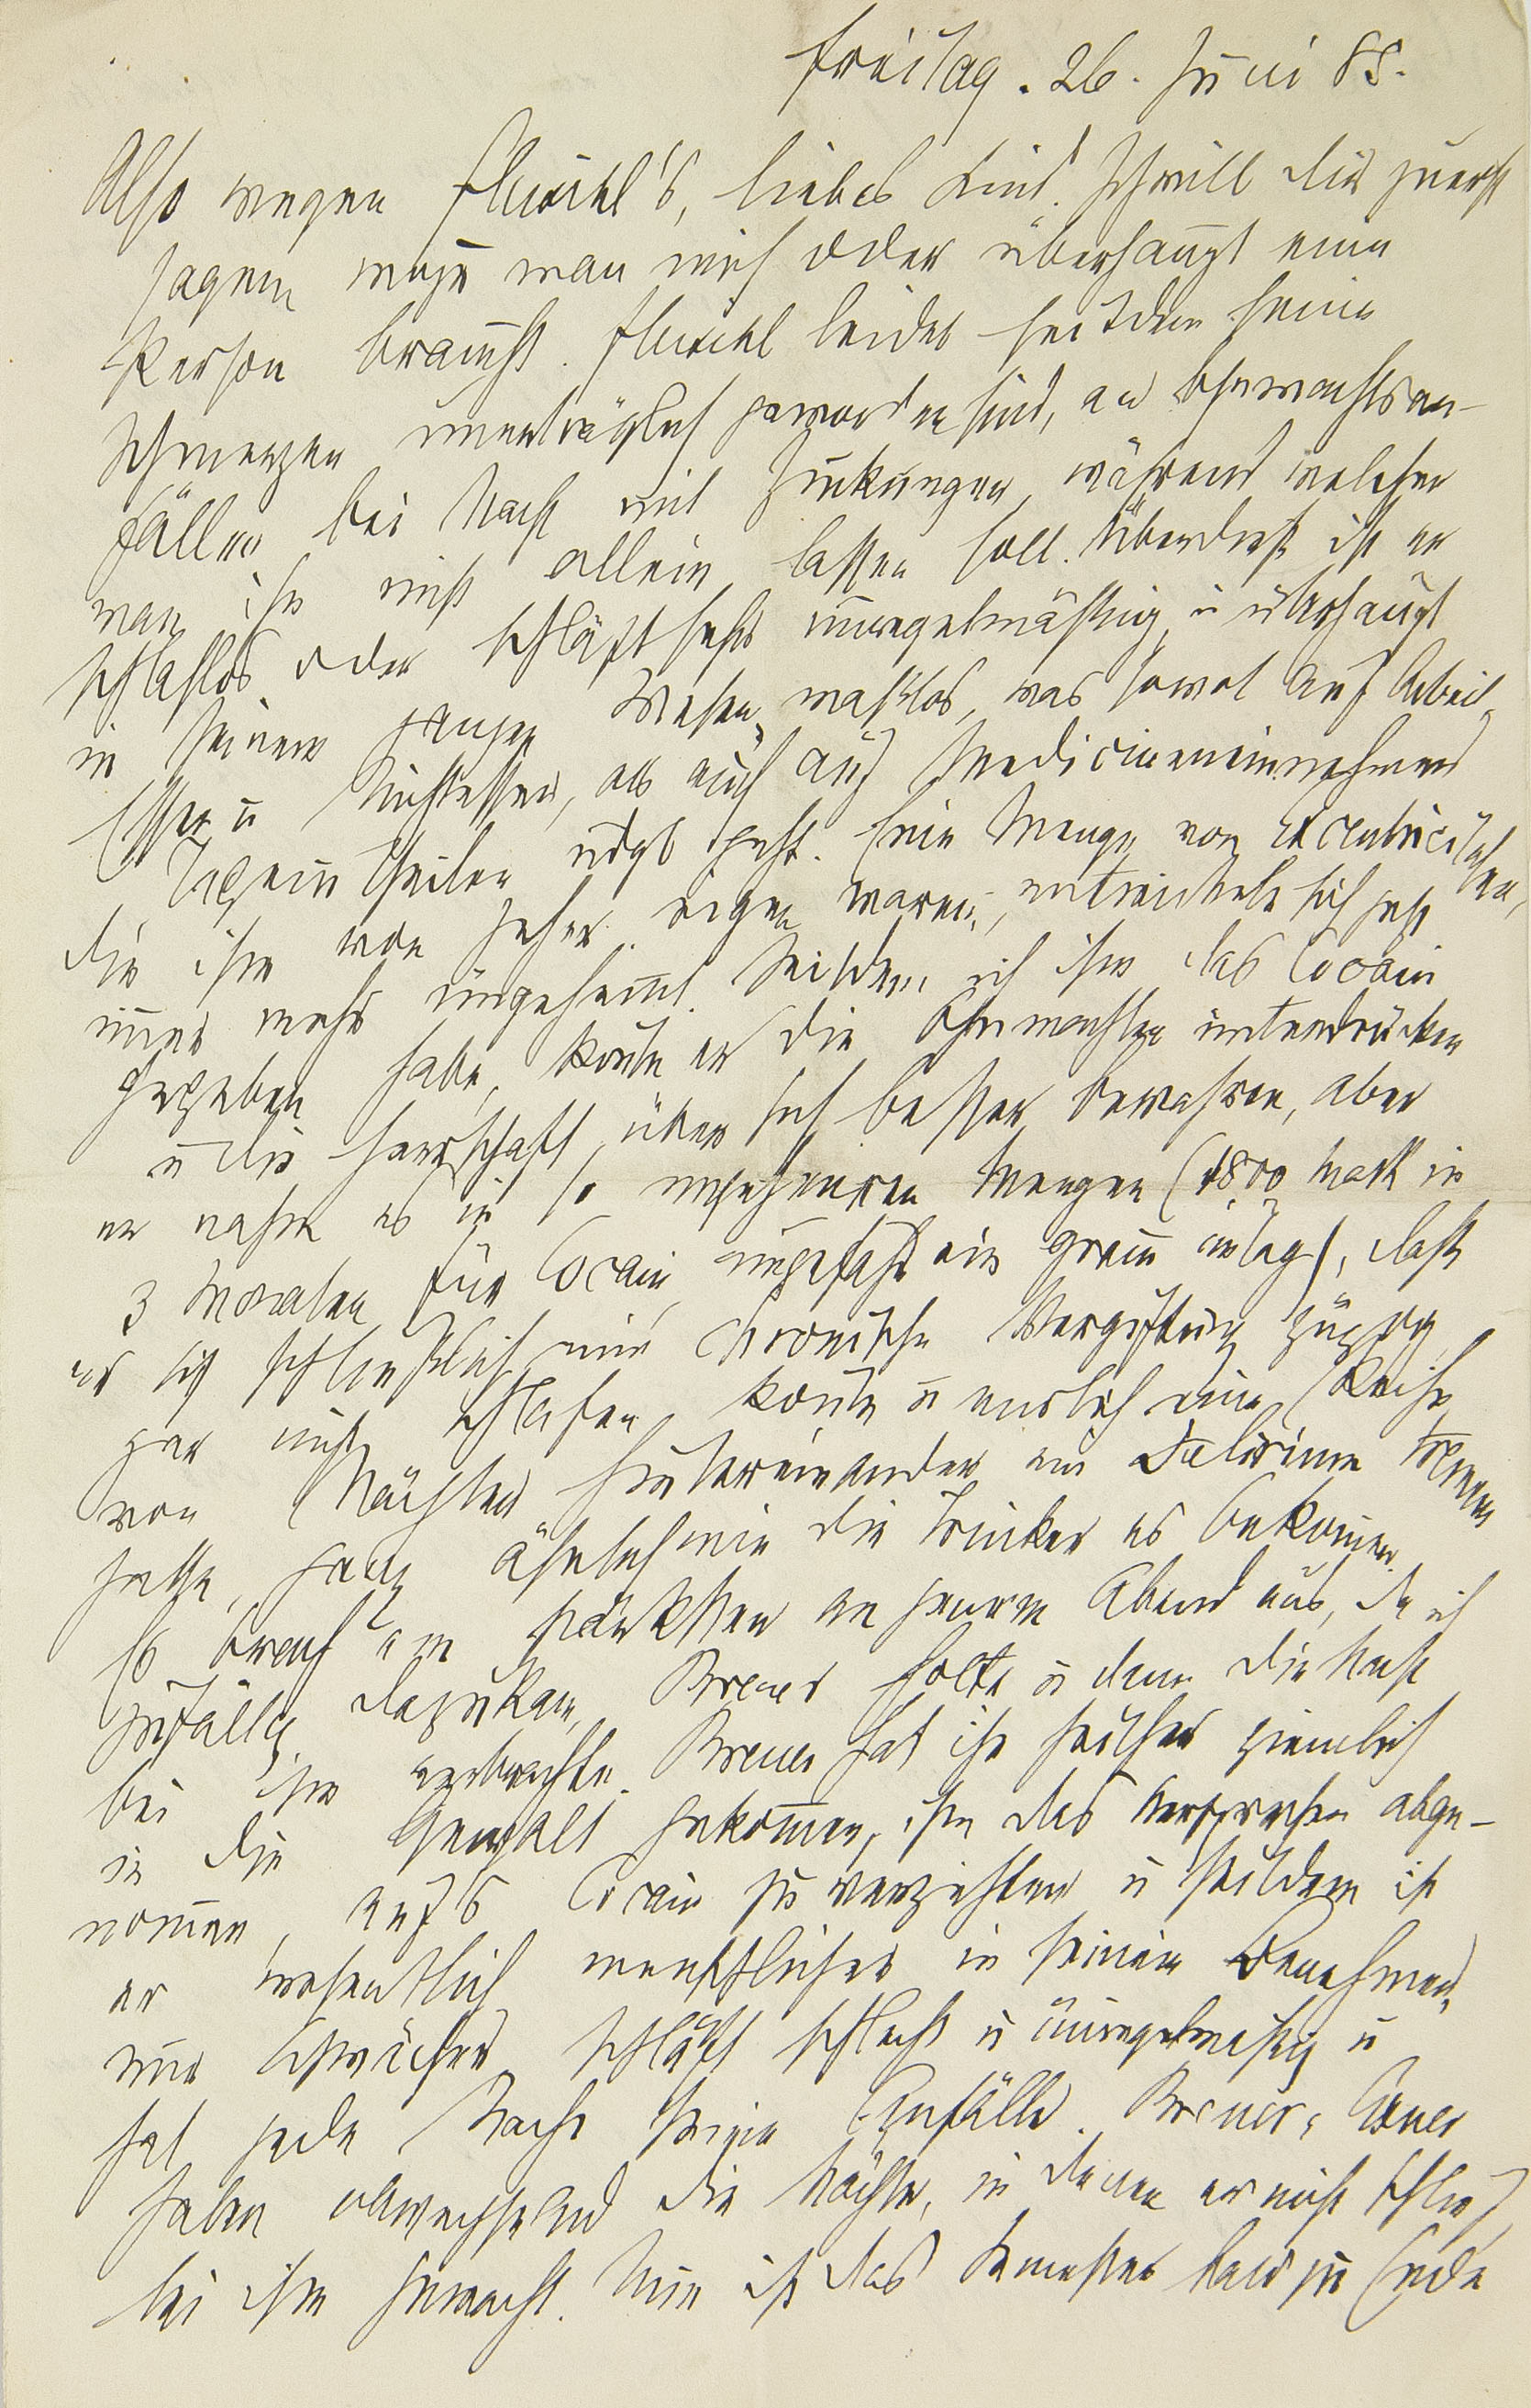 Freitag. 26. Juni 85.
Also wegen Fleischl's, liebes Kind. Ich will dir zuerst
sagen wozu man mich oder überhaupt eine
Person braucht. Fleischl leidet seitdem seine
Schmerzen unerträglich geworden sind, an Ohnmachtsan-
fällen bei Nacht mit Zuckungen, während welcher
man ihn nicht allein lassen soll. Überdieß ist er
schlaflos oder schläft sehr unregelmäßig u überhaupt
in seinem ganzen Wesen maßlos, was sowol auf Arbeit,
Essen u Nichtessen, als auch auf Medicineneinnehmen
udgl geht. Eine Menge von Excentricitäten,
die ihm von jeher eigen waren, entwickelt sich jetzt
immer mehr ungehemt. Seitdem ich ihm das Cocain
gegeben habe, konte er die Ohnmachten unterdrücken
u die Herrschaft über sich besser bewahren, aber
er nahm es in so ungeheuren Mengen (1800 Mark in
3 Monaten für Cocain, ungefähr ein Gram im Tag), daß
er sich schließlich eine chronische Vergiftung zuzog,
gar nicht schlafen konte u endlich eine Reihe
von Nächten hintereinander ein Delirium tremens
hatte, ganz ähnlich wie die Trinker es bekomen.
Es brach am stärksten an jenem Abend aus, da ich
zufällig dazukam, Breuer holte u dann die Nacht
bei ihm verbrachte. Breuer hat ihn seither ziemlich
in die Gewalt bekomen, ihm das Versprechen abge-
nomen, aufs Cocain zu verzichten u seitdem ist
er wesentlich menschlicher in seinem Benehmen,
nur schwächer, schläft schlecht u unregelmäßig u
hat jede Nacht seine Anfälle. Breuer, Exner
haben abwechselnd die Nächte, in denen er nicht schlief
bei ihm gewacht. Nun ist das Semester bald zu Ende